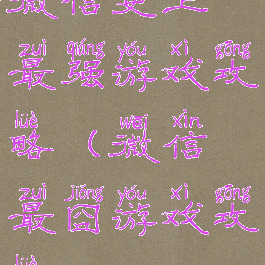 微信史上
zuì qiáng yóu xì gōng
最强游戏攻
lüè wēi xìn
略（微信
zuì jiǒng yóu xì gōng
最囧游戏攻
lüè